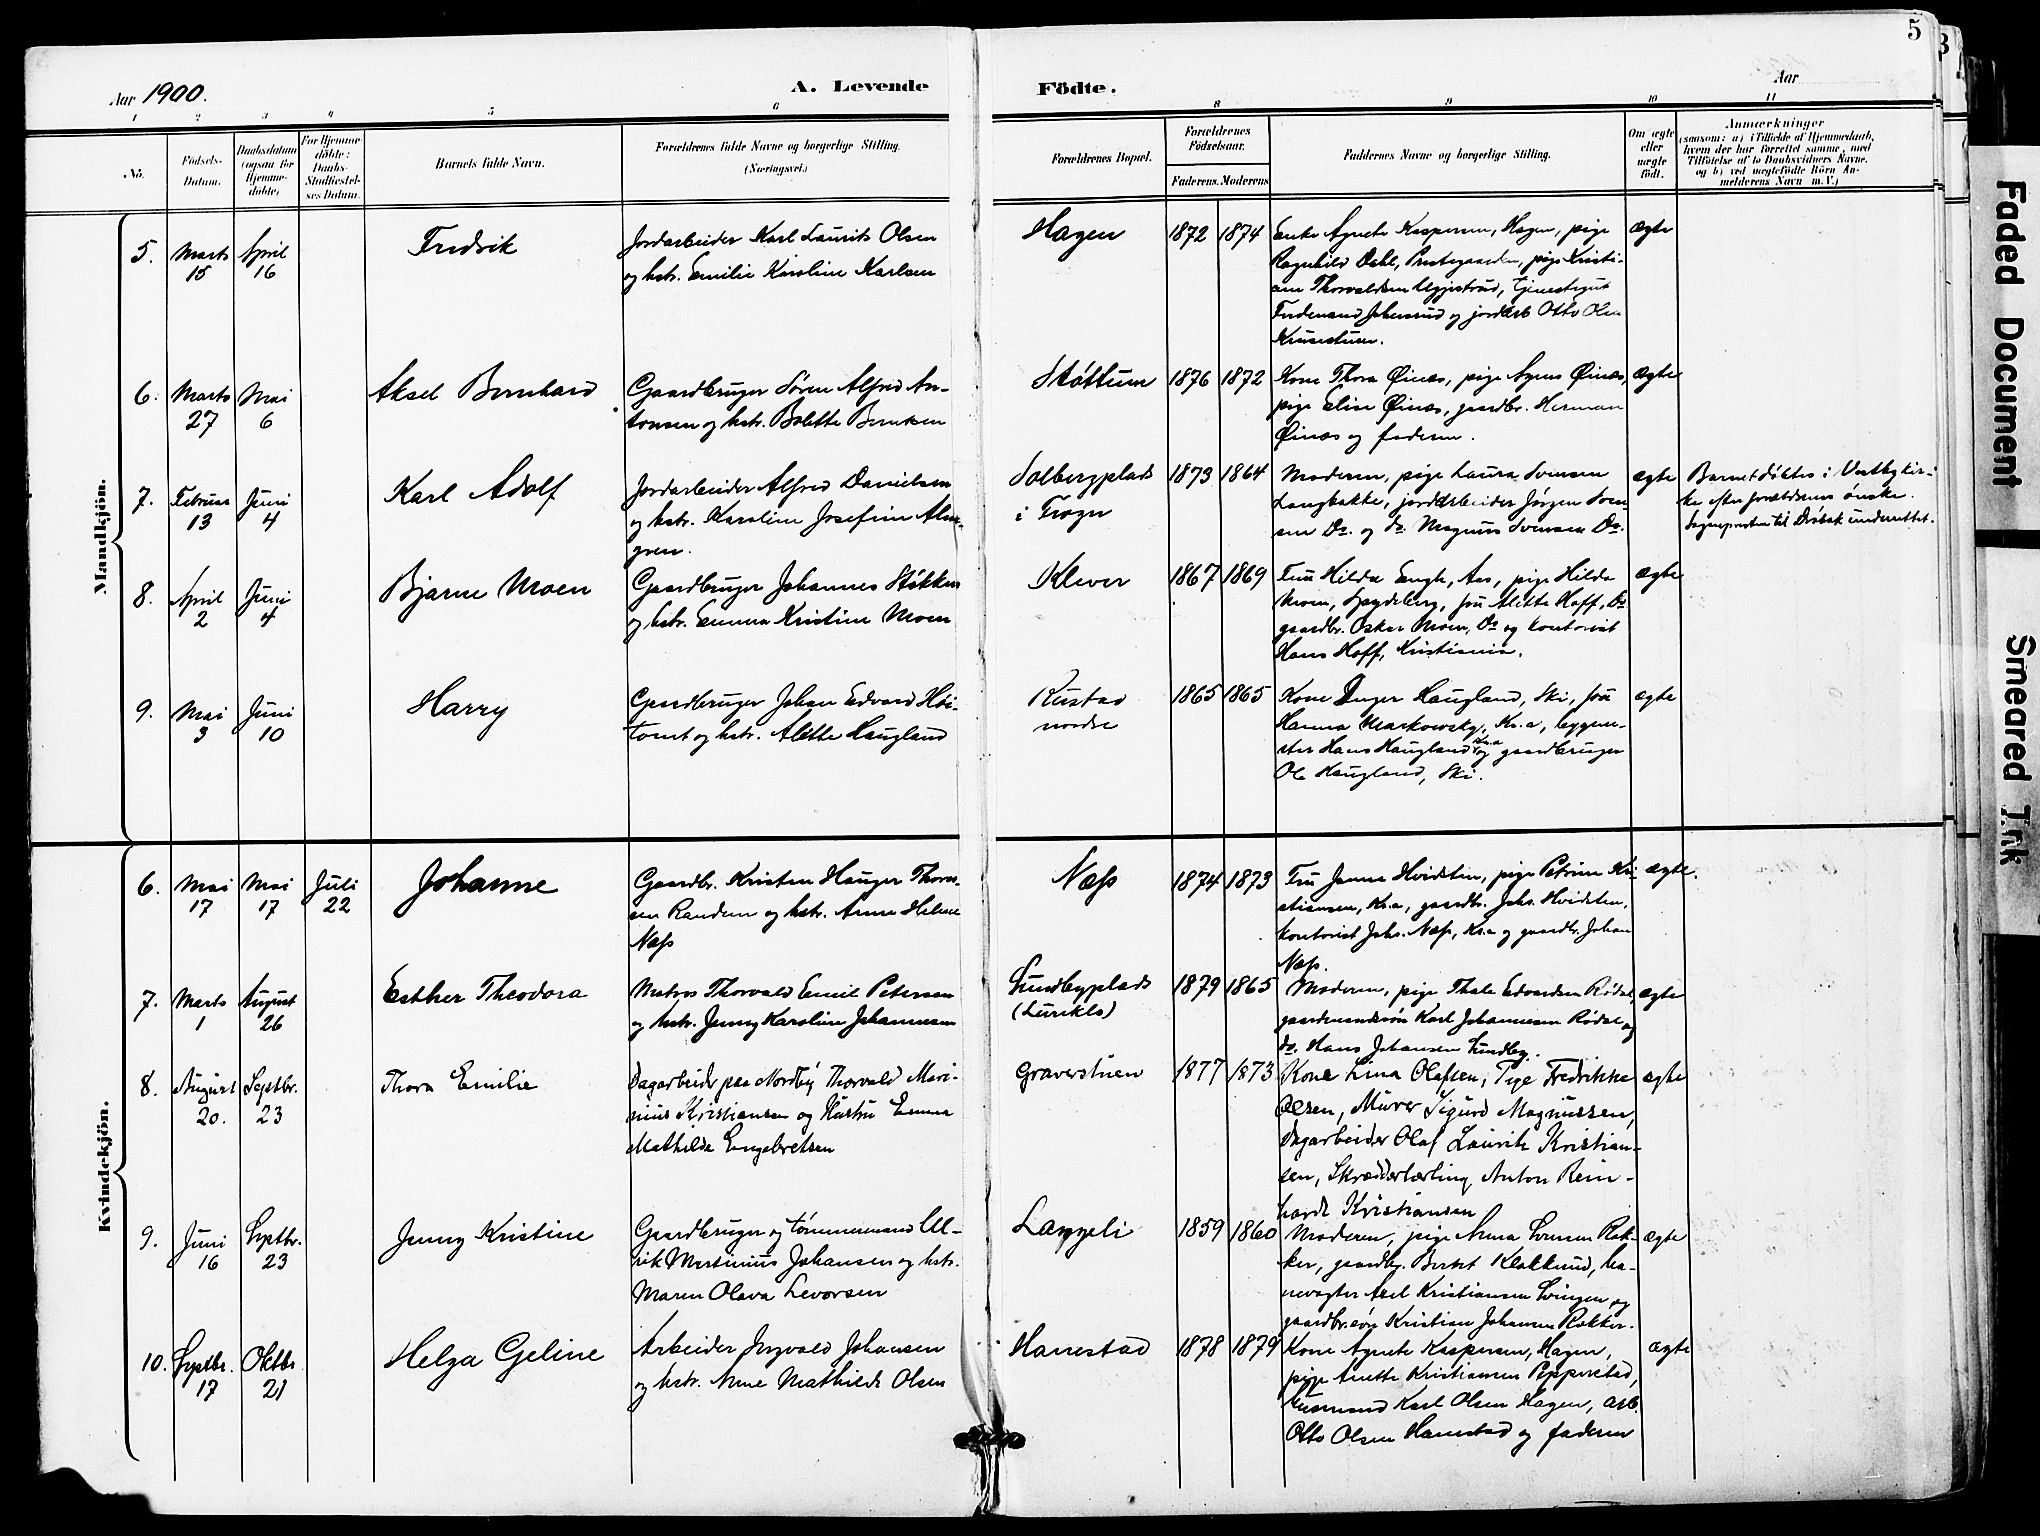 5
3
Aar 1900.
A. Levende
Födte.
Aar
1 2 3 4 5 6 8 9 10 11
No.
Födsels-
Datum.
Daabsdatum
(ogsaa for
Hjemme-
döbte)
For Hjemme-
döbte:
Daabs-
Stadfæstel-
ses Datum.
Barnets fulde Navn.
Forældrenes fulde Navne og borgerlige Stilling.
(Næringsvei.)
Forældrenes Bopæl.
Forældrenes
Födselsaar.
Faderens. Moderens
Faddernes Navne og borgerlige Stilling.
Om ægte
eller
uægte
födt.
Anmærkninger
(saasom: a) i Tilfælde af Hjemmedaab,
hvem der har forrettet samme, med
Tilföielse af to Daabsvidners Navne.
og b) ved uægtefödte Börn An-
melderens Navn m. V.)
Mandkjön.
5.
Marts
15
April
16
Fredrik
Jordarbeider Karl Laurits Olsen
og hstr. Emilie Karoline Karlsen
Hagen
1872
1874
Enke Agnete Kaspersen, Hagen, pige
Ragnhild Dahl, Prestegaarden, pige Kristi-
ane Thorvaldsen Ugjestrud, tjenestegut
Ferdinand Johnsrud og jordarb Otto Olsen
ægte
6.
Marts
27
Mai
6
Aksel Bernhard
Gaardbruger Søren Alfred An-
tonsen og hstr. Bolette Berntsen
Støttum
1876
1872
Kone Thora Øinæs, pige Agnes Øinæs,
pige Elise Øinæs, gaardbr. Herman
Øinæs og faderen.
ægte
7.
Februar
13
Juni
4
Karl Adolf
Jordarbeider Alfred Danielsen
og hstr. Karoline Josefine Alm-
gren.
Solbergplads
i Frogn
1873
1864
Moderen, pige Laura Svensen
Langbakke, jordarbeider Jørgen Sven-
sen Do. og do. Magnus Svensen Do.
ægte
Barnet døbtes i Vestbykir-
ke efter forældrenes ønske.
Sognepresten til Drøbak underrettet.
8.
April
2
Juni
4
Bjarne Moen
Gaardbruger Johannes Støkken
og hstr. Emma Kristine Moen
Klever
1867
1869
Fru Hilda Engh, Aas, pige Hilda
Moen, Spydeberg, fru Alette Hoff, Do
gaardbr. Oskar Moen, Do og kontorist
Hans Hoff, Kristiania.
ægte
9.
Mai
3
Juni
10
Harry
Gaardbruger Johan Edvard Høi-
tomt og hstr. Alette Haugland
Rustad
nordre
1865
1865
Kone Inger Haugland, Ski, fru
Hanna Markowsky, Kr.a, bygme-
ster Hans Haugland Kr.a og gaardbruger
Ole Haugland, Ski.
ægte
Kvindekjön.
6.
Mai
17
Mai
17
Juli
22
Johanne
Gaardbr. Kristen Hauger Thorse-
sen Randem og hstr. Anna Helene
Næss
Næss
1874
1873
Fru Janna Hvidsten, pige Petrine Kri-
stiansen, Kr.a, gaardbr. Johs. Hvidsten,
kontorist Johs. Næss, Kr.a og gaardbr. Johan
Næss.
ægte.
7.
Marts
1
August
26
Esther Theodora
Matros Thorvald Emil Petersen
og hstr. Jenny Karoline Johannesen
Sundbyplads
1879
1865
Moderen, pige Thale Edvardsen Rødse,
gaardmandssøn Karl Johannesen Rødse og
do. Hans Johansen Sundby.
ægte
8.
August
20.
Septbr.
23
Thora Emilie
Dagarbeider paa Nordby Thorvald Mari-
nius Kristiansen og Hustru Emma
Mathilde Engebretsen
Graverstuen
1877
1873
Kone Lina Olafsen, Pige Fredrikke
Olsen, Murer Sigurd Magnussen,
Dagarbeider Olaf Laurits Kristian-
sen, Skrædderlærling Anton Rein-
hardt Kristiansen
ægte
9.
Juni
16
Septbr.
23
Jenny Kristine
Gaardbruger og tømmermand Ul-
rik Martinius Johansen og hstr.
Maren Olava Levorsen
Langeli
1859
1860
Moderen, pige Anna Svensen Rak-
ker, gaardbr. Bertet Klokkund, ba-
nevogter Axel Kristiansen Svingen og
gaardbr.søn Kristian Johansen Rakker.
ægte
10.
Septbr.
17
Oktbr.
21
Helga Geline
Arbeider Ingvald Johansen
og hstr. Anne Mathilde Olsen
Hanestad
1878
1879
Kone Agnete Kaspersen, Hagen,
pige Anette Kristiansen Pepperstad,
Husmand Karl Olsen Hagen, arb.
Otto Olsen Hanestad og faderen
ægte
Faded Document
Smeared Ink